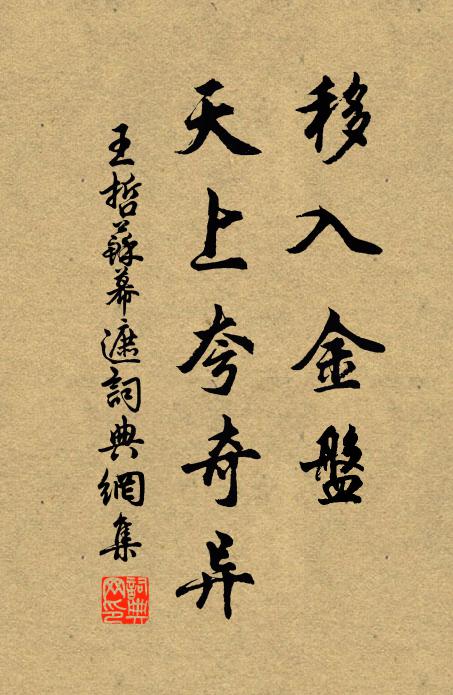 移入金盤
天上夸奇异
王哲蘇幕遮詞典網集
詞典网印